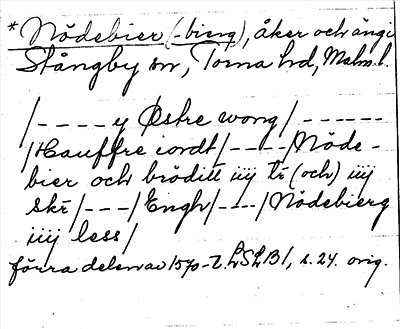 * Nödebier (-bierg), åker och äng i
Stångby sn, Torna hd, Malm. l.
/----y Østre wong/------
/Hauffre iordt/----/Nöde-
bier och bröditt iiij tr (och) iiij
skr/---/Engh/----/Nödebierg
iiij less/
förra delen av 1570-t. LSLB1, s. 24. orig.